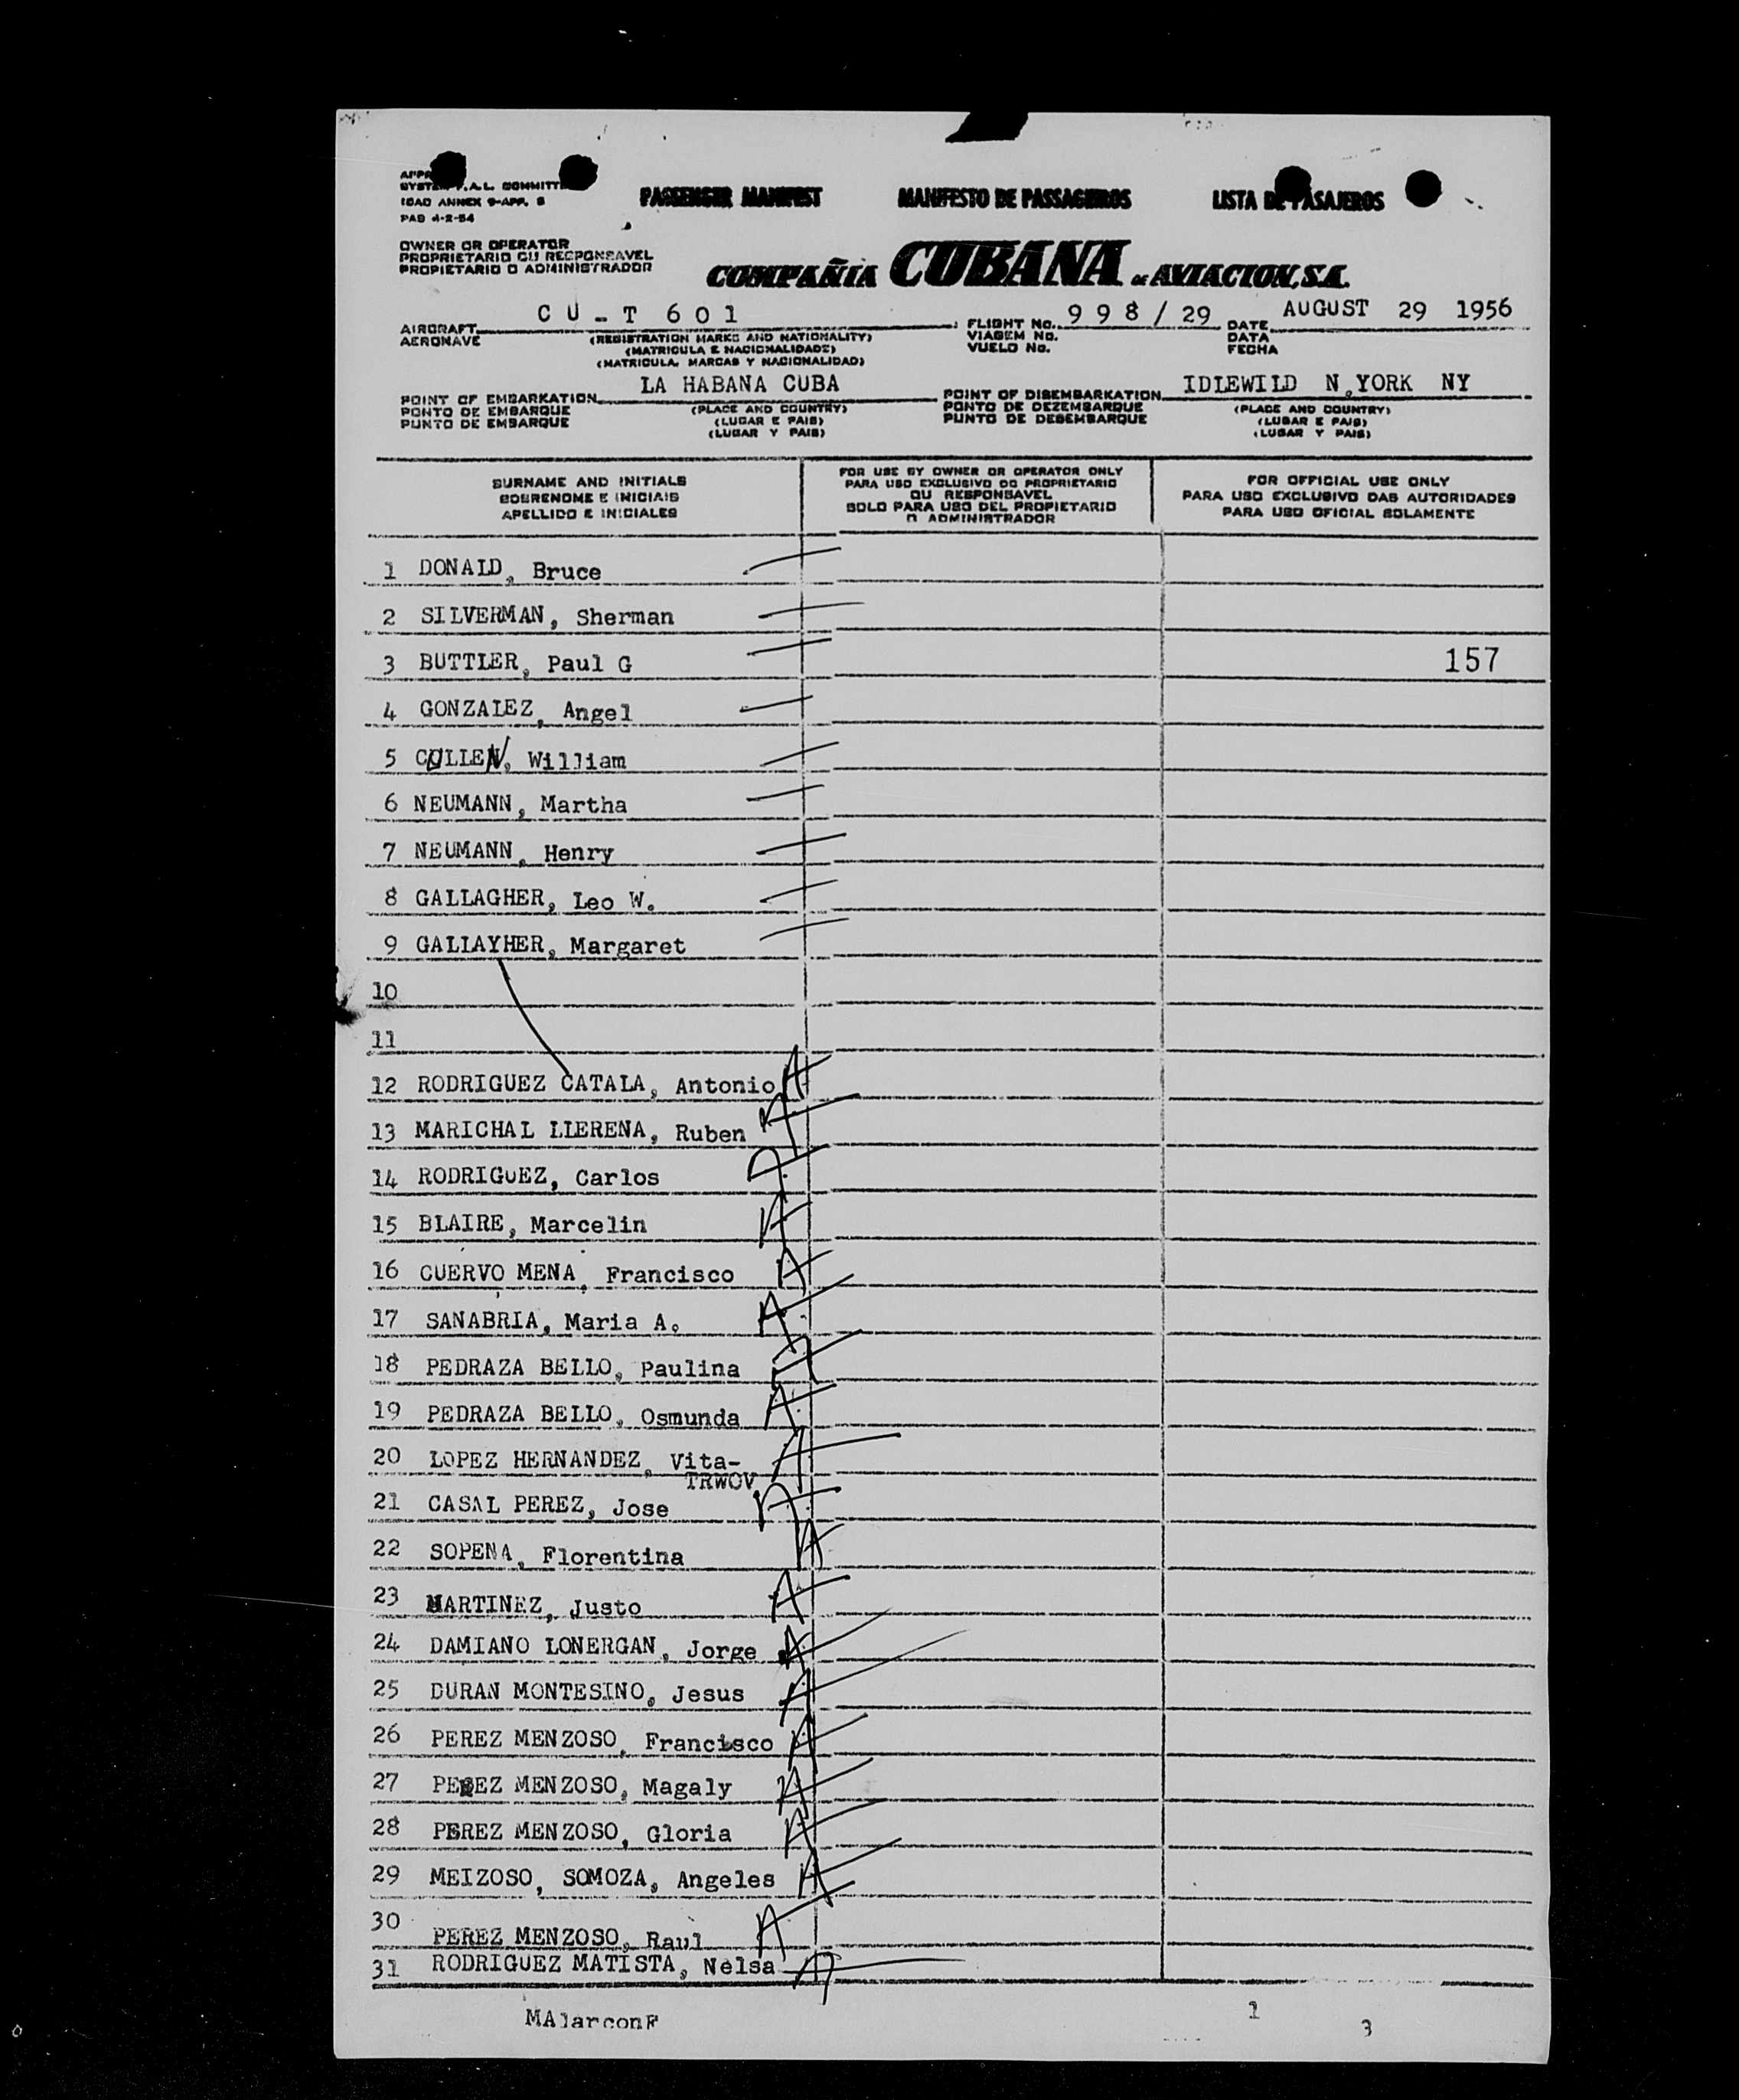 SYSTEM F.A.L. COMMITT
ICAO ANNEX 9-APP. 5
PAD 4-2-54
PASSENGER MANIFEST MANIFESTO DE PASSAGEIROS LISTA DE PASAJEROS
OWNER OR OPERATOR
PROPRIETARIO OU RESPONSAVEL
PROPIETARIO O ADMINISTRADOR
COMPAÑIA CUBANA DE AVIACION, S.A.
AIRCRAFT CU-T 601 FLIGHT No. 998/29 DATE AUGUST 29 1956
AERONAVE (REGISTRATION MARKS AND NATIONALITY) VIAGEM No. DATA
(MATRICULA E NACIONALIDADE) VUELO No. FECHA
(MATRICULA, MARCAS Y NACIONALIDAD)
POINT OF EMBARKATION LA HABANA CUBA POINT OF DISEMBARKATION IDLEWILD N.YORK NY
PONTO DE EMBARQUE (PLACE AND COUNTRY) PONTO DE DEZEMBARQUE (PLACE AND COUNTRY)
PUNTO DE EMBARQUE (LUGAR E PAIS) PUNTO DE DESEMBARQUE (LUGAR E PAIS)
(LUGAR Y PAIS) (LUGAR Y PAIS)
SURNAME AND INITIALS
SOBRENOME E INICIAIS
APELLIDO E INICIALES
FOR USE BY OWNER OR OPERATOR ONLY
PARA USO EXCLUSIVO DO PROPRIETARIO
OU RESPONSAVEL
SOLO PARA USO DEL PROPIETARIO
O ADMINISTRADOR
FOR OFFICIAL USE ONLY
PARA USO EXCLUSIVO DAS AUTORIDADES
PARA USO OFICIAL SOLAMENTE
1 DONALD, Bruce
2 SILVERMAN, Sherman
3 BUTTLER, Paul G 157
4 GONZALEZ, Angel
5 CULLEN, William
6 NEUMANN, Martha
7 NEUMANN, Henry
8 GALLAGHER, Leo W.
9 GALLAYHER, Margaret
10
11
12 RODRIGUEZ CATALA, Antonio A
13 MARICHAL LLERENA, Ruben A
14 RODRIGUEZ, Carlos A
15 BLAIRE, Marcelin A
16 CUERVO MENA, Francisco A
17 SANABRIA, Maria A. A
18 PEDRAZA BELLO, Paulina A
19 PEDRAZA BELLO, Osmunda A
20 LOPEZ HERNANDEZ, Vita- A
TRWOV
21 CASAL PEREZ, Jose A
22 SOPENA, Florentina A
23 MARTINEZ, Justo A
24 DAMIANO LONERGAN, Jorge A
25 DURAN MONTESINO, Jesus A
26 PEREZ MENZOSO, Francisco A
27 PEREZ MENZOSO, Magaly A
28 PEREZ MENZOSO, Gloria A
29 MEIZOSO, SOMOZA, Angeles A
30 PEREZ MENZOSO, Raul A
31 RODRIGUEZ MATISTA, Nelsa A
MAlarconF 1 3